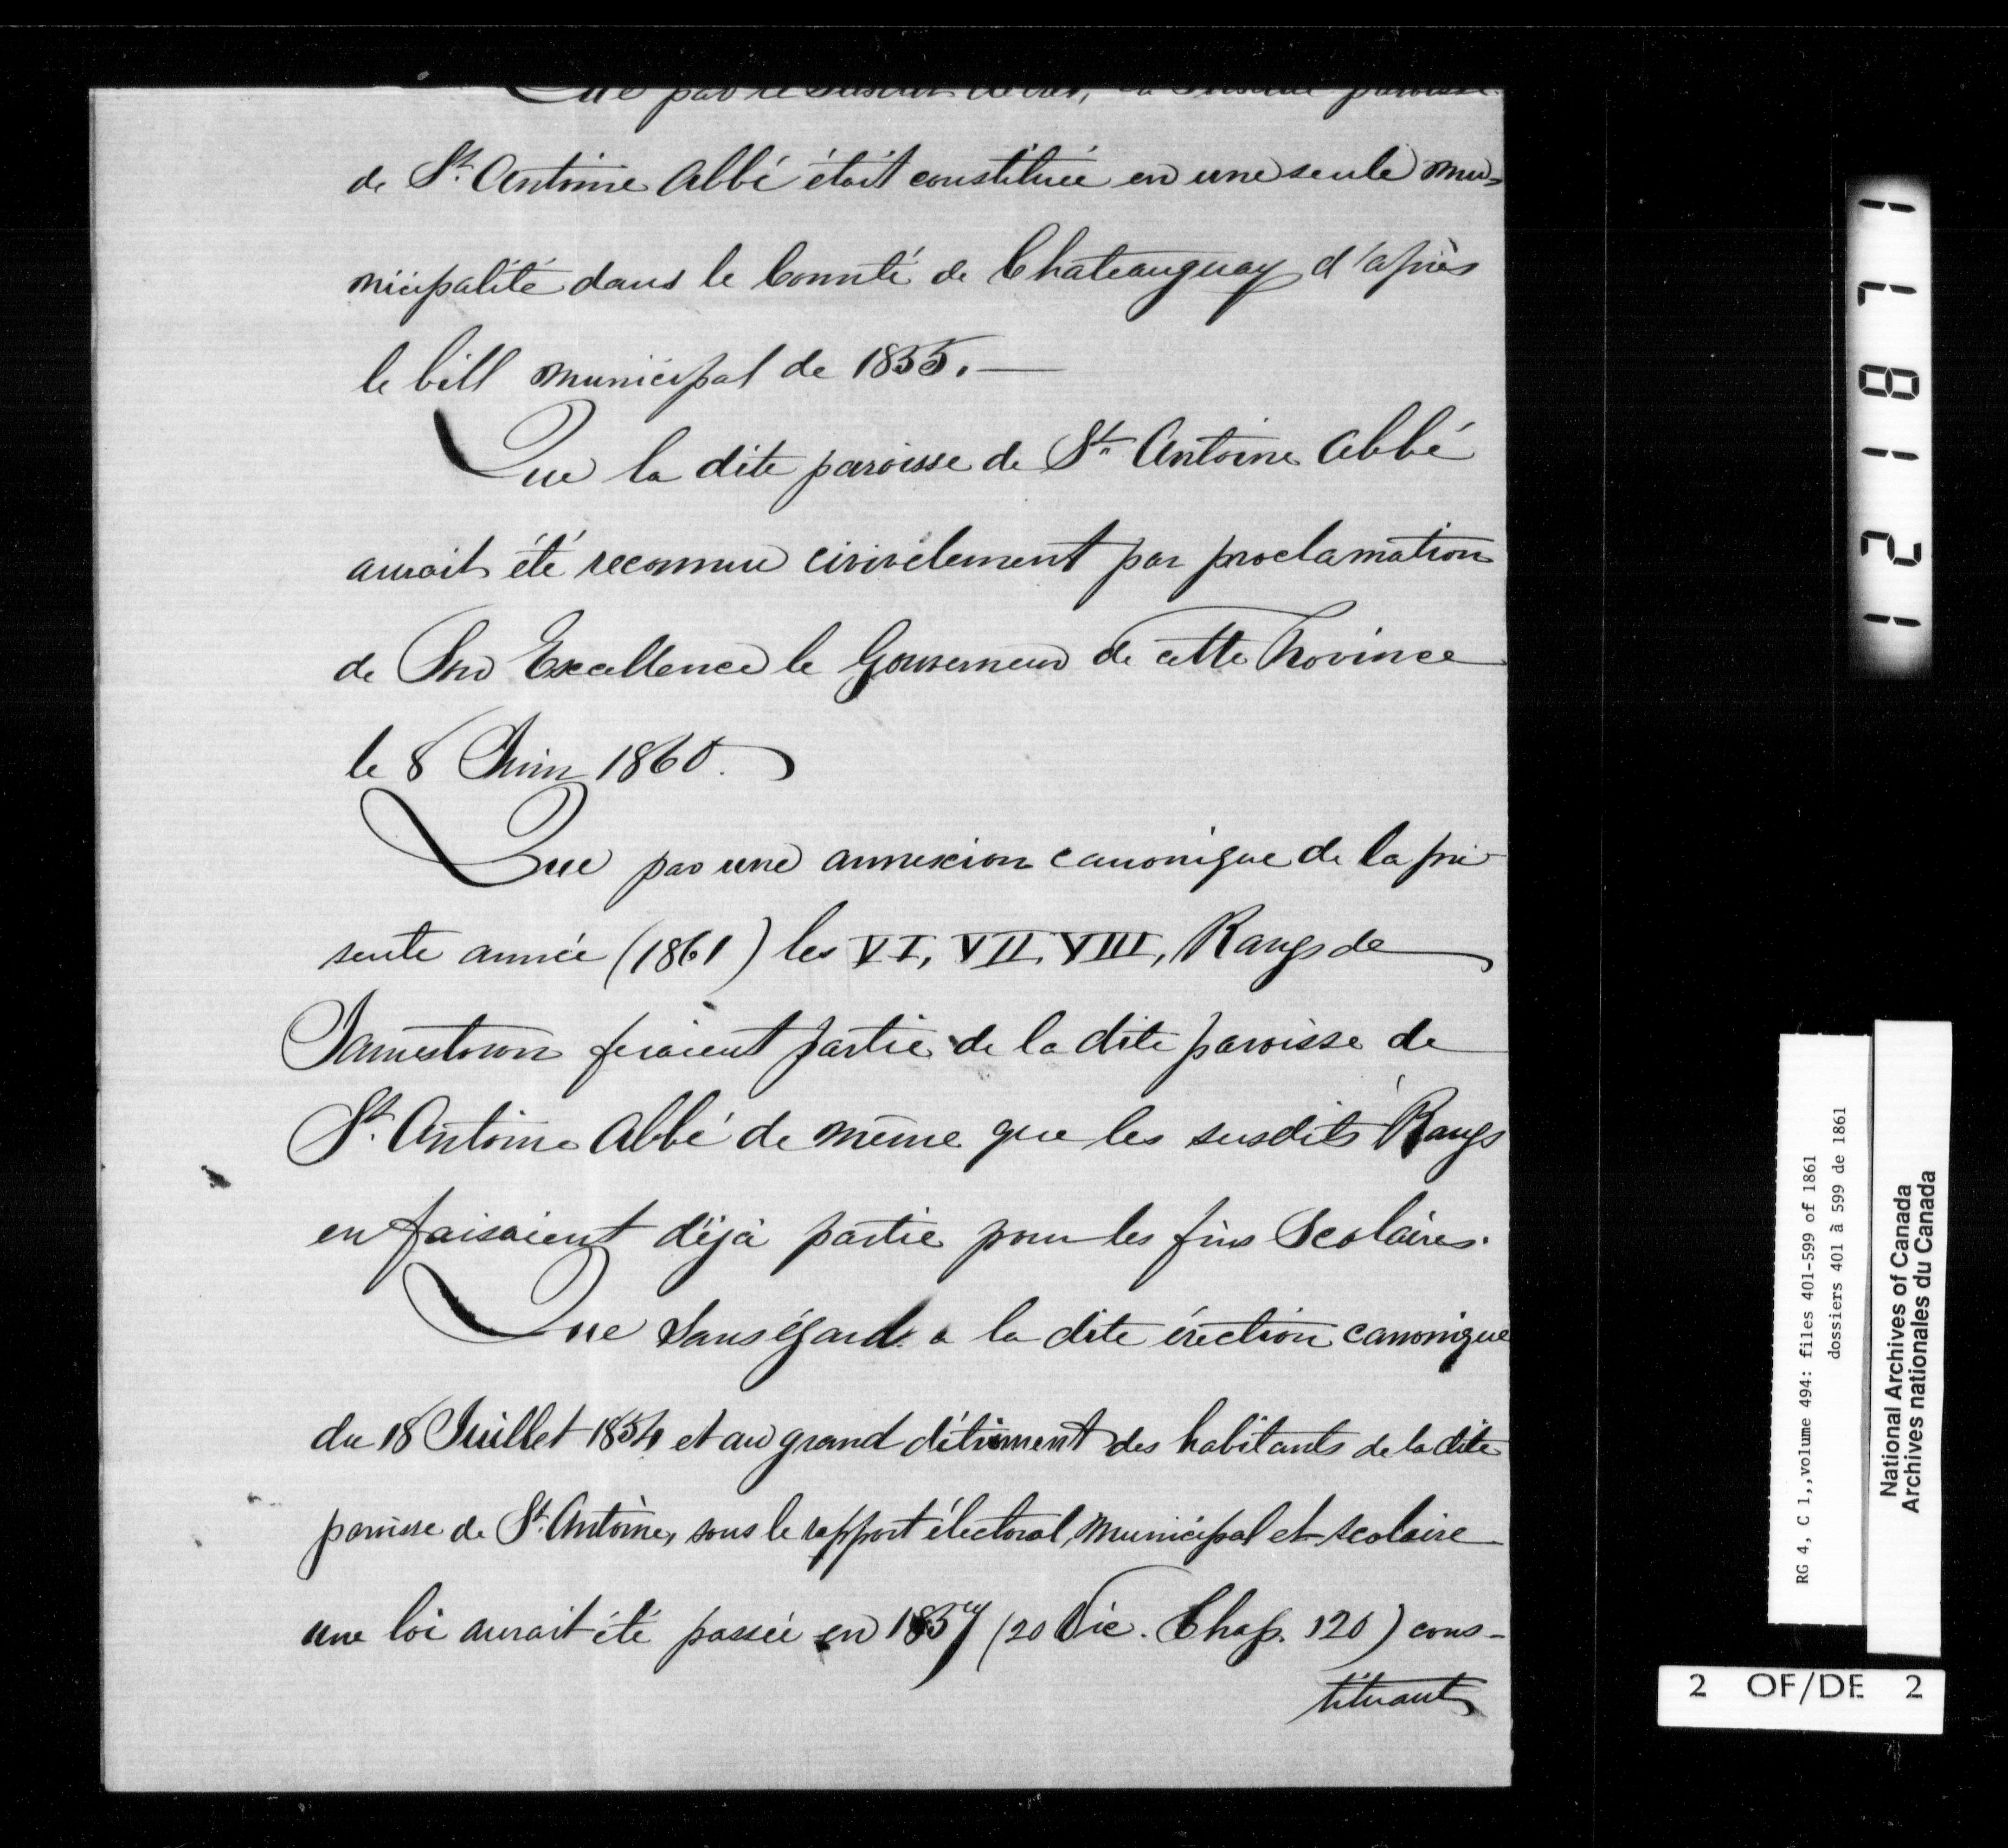 Que par le susdit décret, la susdite paroisse
de St. Antoine Abbé était constituée en une seule mu-
nicipalité dans le Comté de Chateauguay d'après
le bill municipal de 1855. —
Que la dite paroisse de St. Antoine Abbé
aurait été reconnue civivilement par proclamation
de Son Excellence le Gouverneur de cette Province
le 8 Juin 1860.
Que par une annexion canonique de la pré-
sente année (1861) les VI, VII, VIII, Rangs de
Jamestown feraient partie de la dite paroisse de
St. Antoine Abbé de même que les susdits Rangs
en faisaient déjà partie pour les fins Scolaires.
Que sans égard a la dite érection canonique
du 18 Juillet 1854 et au grand détriment des habitants de la dite
paroisse de St. Antoine, sous le rapport électoral, municipal et scolaire
une loi aurait été passée en 1857 (20 Vic. Chap. 120) cons-
tituant
121871
RG 4, C 1,,volume 494: files 401-599 of 1861
dossiers 401 à 599 de 1861
National Archives of Canada
Archives nationales du Canada
2 OF/DE 2